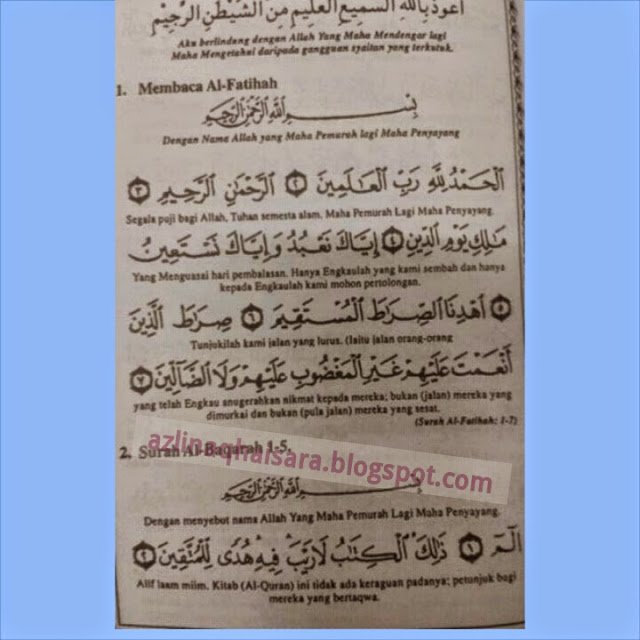 أعوذ بالله السميع العليم من الشيطن الرجيم
Aku berlindung dengan Allah Yang Maha Mendengar lagi
Maha Mengetahui daripada gangguan syaitan yang terkutuk.
1. Membaca Al-Fatihah
بِسْمِ اللَّهِ الرَّحْمَٰنِ الرَّحِيمِ
Dengan Nama Allah yang Maha Pemurah lagi Maha Penyayang
الْحَمْدُ لِلَّهِ رَبِّ الْعَالَمِينَ ٢ الرَّحْمَٰنِ الرَّحِيمِ ٣
Segala puji bagi Allah, Tuhan semesta alam. Maha Pemurah Lagi Maha Penyayang.
مَالِكِ يَوْمِ الدِّينِ ٤ إِيَّاكَ نَعْبُدُ وَإِيَّاكَ نَسْتَعِينُ
Yang Menguasai hari pembalasan. Hanya Engkaulah yang kami sembah dan hanya
kepada Engkaulah kami mohon pertolongan.
٥ اهْدِنَا الصِّرَاطَ الْمُسْتَقِيمَ ٦ صِرَاطَ الَّذِينَ
Tunjukilah kami jalan yang lurus. (Iaitu jalan orang-orang
أَنْعَمْتَ عَلَيْهِمْ غَيْرِ الْمَغْضُوبِ عَلَيْهِمْ وَلَا الضَّالِّينَ ٧
yang telah Engkau anugerahkan nikmat kepada mereka; bukan (jalan) mereka yang
dimurkai dan bukan (pula jalan) mereka yang sesat.
(Surah Al-Fatihah: 1-7)
azlinaqhaisara.blogspot.com
2. Surah Al-Baqarah 1-5.
بِسْمِ اللَّهِ الرَّحْمَٰنِ الرَّحِيمِ
Dengan menyebut nama Allah Yang Maha Pemurah Lagi Maha Penyayang.
الٓمٓ ١ ذَٰلِكَ الْكِتَابُ لَا رَيْبَ فِيهِ هُدًى لِلْمُتَّقِينَ ٢
Alif laam miim. Kitab (Al-Quran) ini tidak ada keraguan padanya; petunjuk bagi
mereka yang bertaqwa.